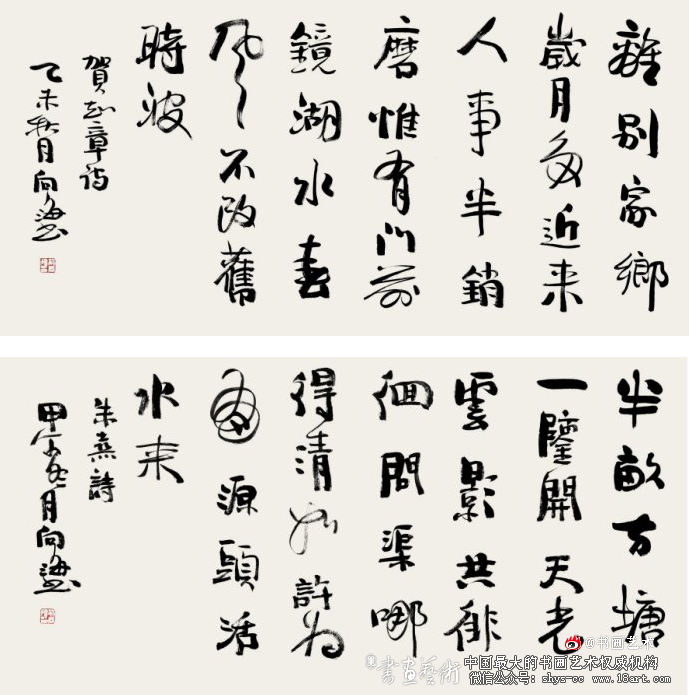 離别家鄉
歲月多近来
人事半銷
磨惟有门前
鏡湖水春
风不改舊
時波
賀知章诗
乙未秋月向海书
半畝方塘
一鑒開天光
雲影共徘
徊問渠哪
得清如許为
有源頭活
水来
朱熹詩
月向海书
@书画艺术
書畫藝術
中国最大的书画艺术权威机构
微信公众号: shys-cc www.18art.com